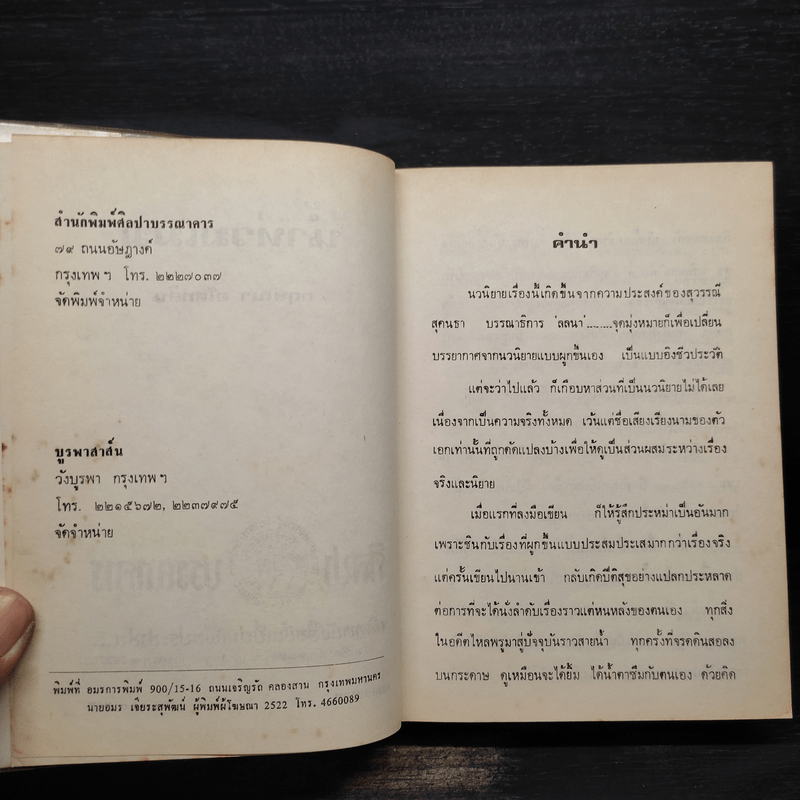 สำนักพิมพ์ศิลปาบรรณาคาร
๗๙ ถนนอัษฎางค์
กรุงเทพฯ โทร. ๒๒๒๗๐๓๗
จัดพิมพ์จำหน่าย
บูรพาสาส์น
วังบูรพา กรุงเทพฯ
โทร. ๒๒๑๕๖๗๒, ๒๒๓๙๗๘๕
จัดจำหน่าย
พิมพ์ที่ อมรการพิมพ์ 900/15-16 ถนนเจริญรัถ คลองสาน กรุงเทพมหานคร
นายอมร เจียระสุพัฒน์ ผู้พิมพ์ผู้โฆษณา 2522 โทร. 4660089
คำนำ
นวนิยายเรื่องนี้เกิดขึ้นจากความประสงค์ของสุวรรณี
สุคนธา บรรณาธิการ ‘ลลนา’........จุดมุ่งหมายก็เพื่อเปลี่ยน
บรรยากาศจากนวนิยายแบบผูกขึ้นเอง เป็นแบบอิงชีวประวัติ
แต่จะว่าไปแล้ว ก็เกือบหาส่วนที่เป็นนวนิยายไม่ได้เลย
เนื่องจากเป็นความจริงทั้งหมด เว้นแต่ชื่อเสียงเรียงนามของตัว
เอกเท่านั้นที่ถูกดัดแปลงบ้างเพื่อให้ดูเป็นส่วนผสมระหว่างเรื่อง
จริงและนิยาย
เมื่อแรกที่ลงมือเขียน ก็ให้รู้สึกประหม่าเป็นอันมาก
เพราะชินกับเรื่องที่ผูกขึ้นแบบประสมประเสมากกว่าเรื่องจริง
แต่ครั้นเขียนไปนานเข้า กลับเกิดปีติสุขอย่างแปลกประหลาด
ต่อการที่จะได้นั่งลำดับเรื่องราวแต่หนหลังของตนเอง ทุกสิ่ง
ในอดีตไหลพรูมาสู่ปัจจุบันราวสายน้ำ ทุกครั้งที่จรดดินสอลง
บนกระดาษ ดูเหมือนจะได้ยิ้ม ได้น้ำตาซึมกับตนเอง ด้วยคิด